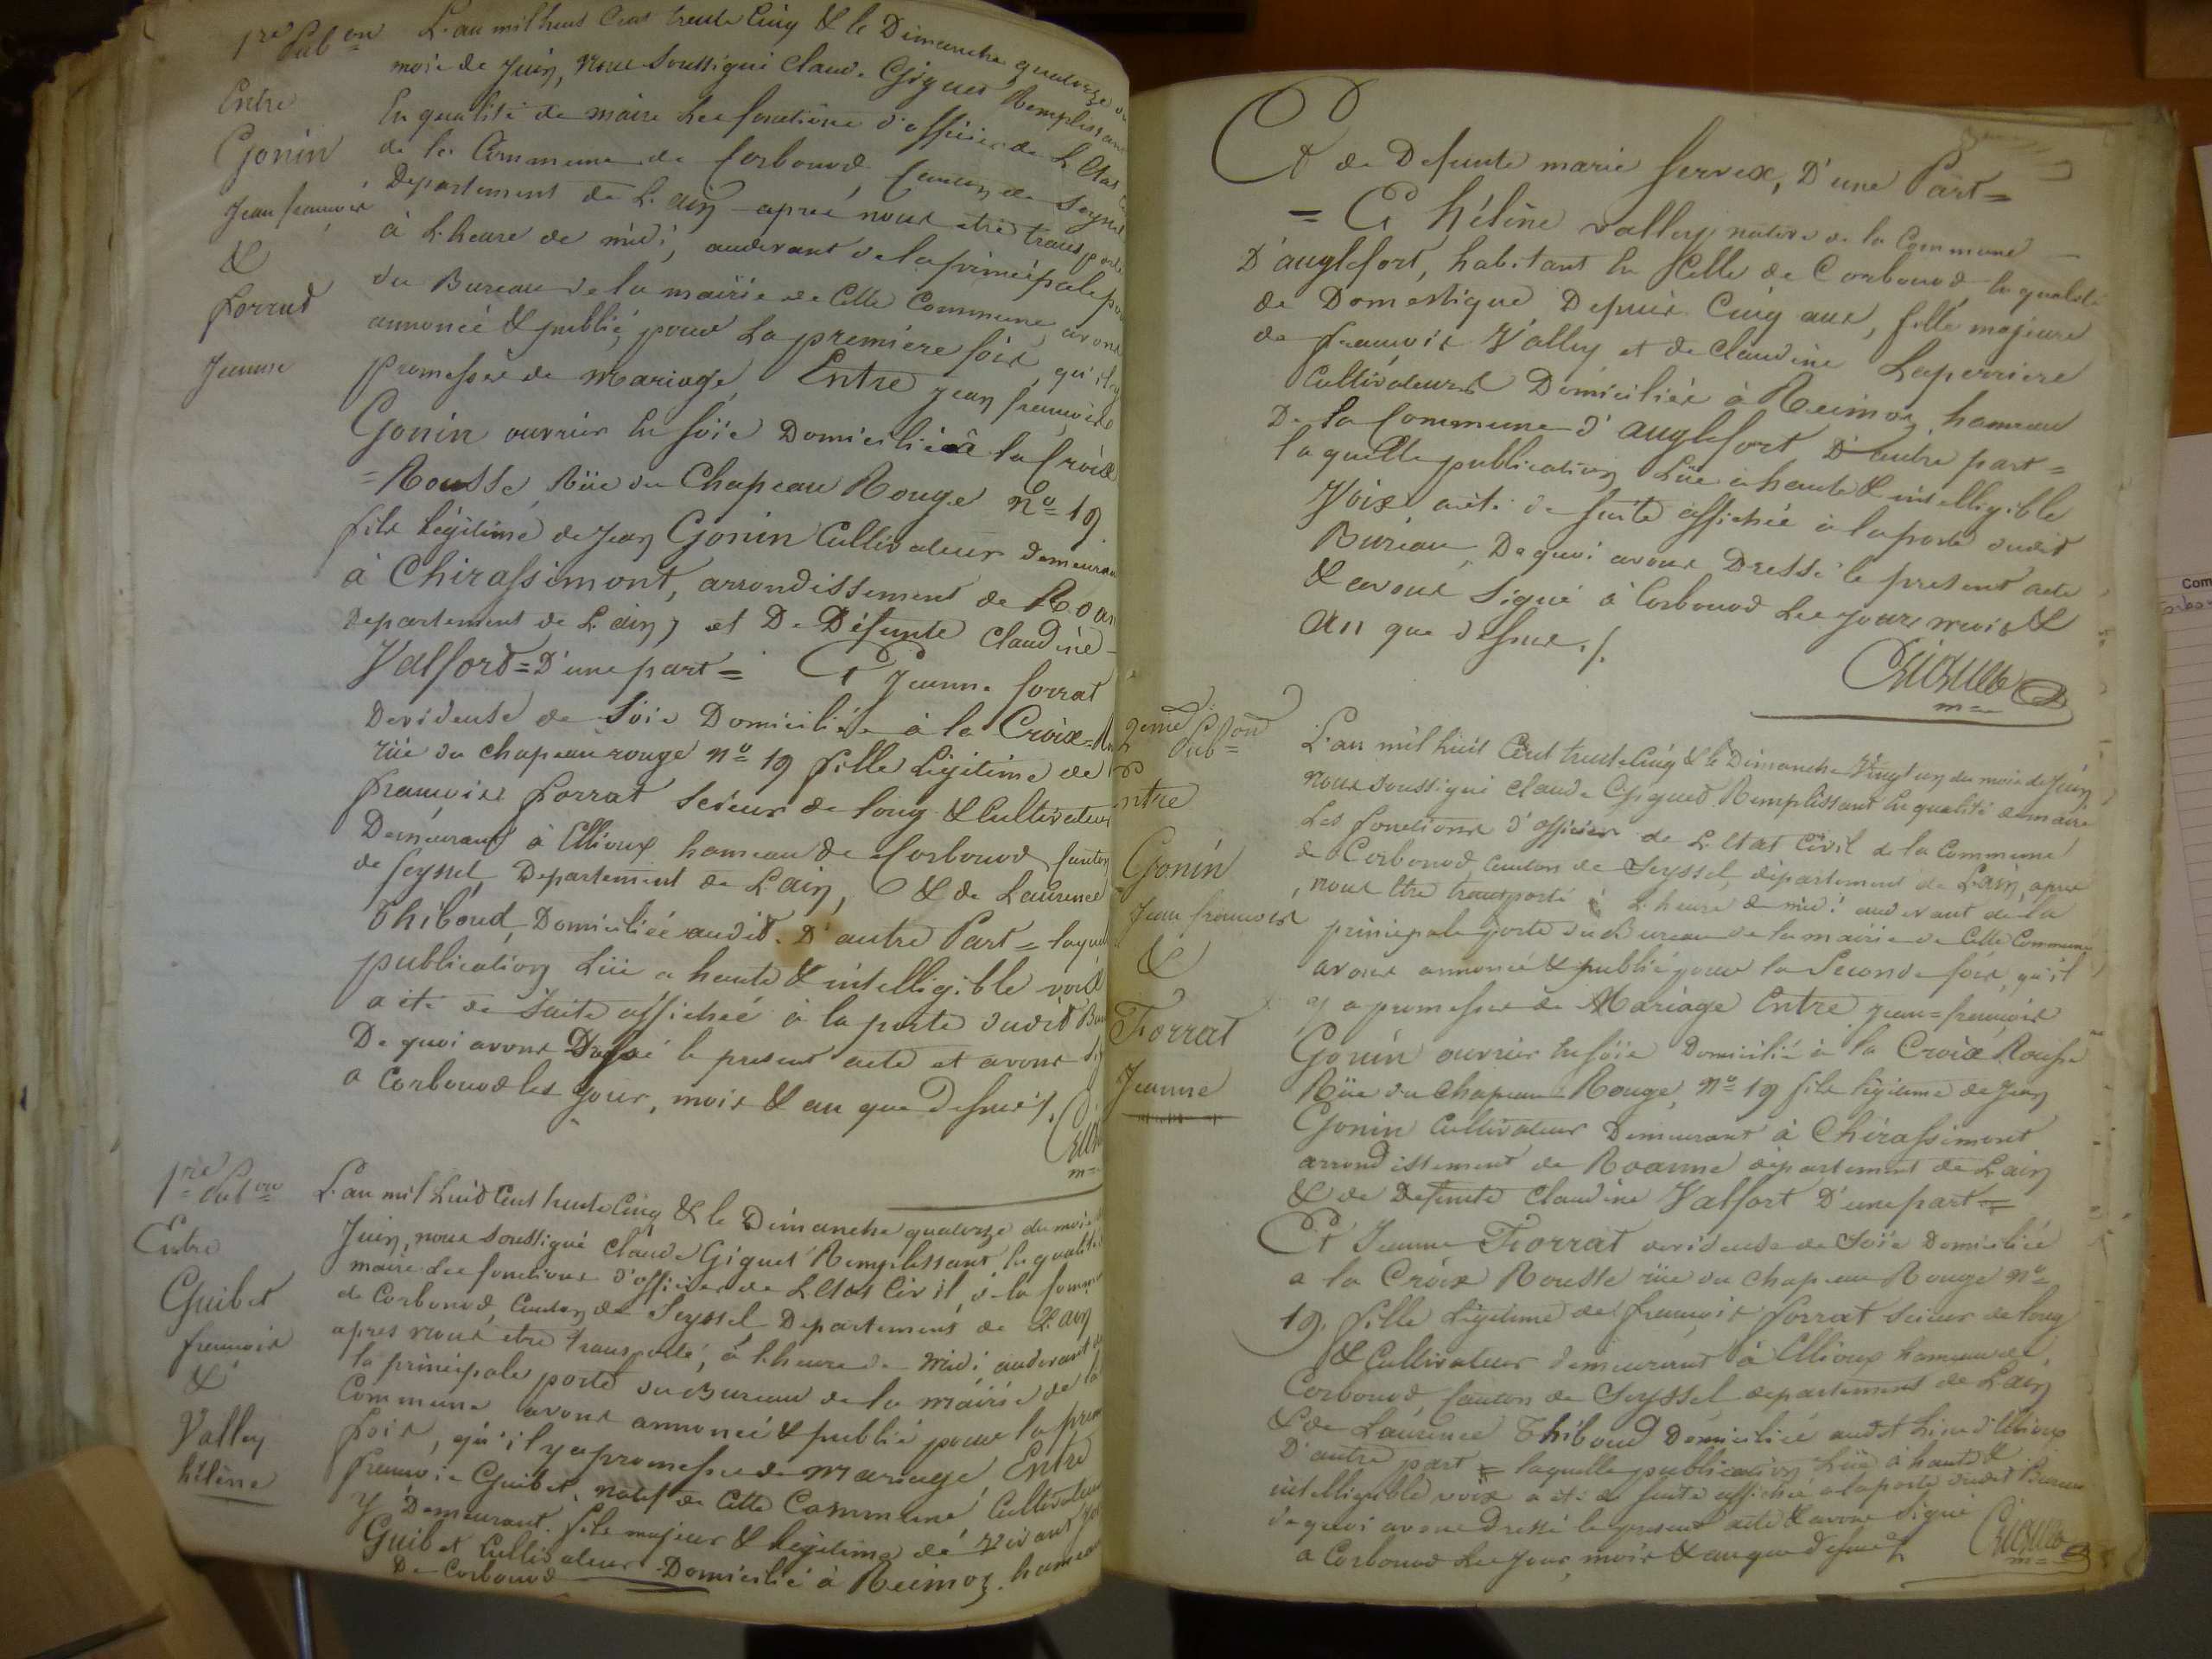 1re Pub on
Entre
Gonin
Jean françois
&
Forrat
Jeanne
L'an mil huit Cent trente Cinq & le Dimanche quatorze du
mois de Juin, nous Soussigné Claude Giguet Remplissant
En qualité de maire Les fonctions d'officier de L'Etat
de la Commune de Corbonod, Canton de Seyssel
Departement de L'ain, apres nous etre transporté
à L'heure de midi, audevant de la principale
du Bureau de la mairie de Cette Commune, avons
annoncé & publié, pour La premiere fois, qu'il y
promesse de mariage, Entre Jean françois
Gonin ouvrier En soie Domicilié à la Croix
=Rousse, Rüe du Chapeau Rouge no 19
fils légitime de Jean Gonin Cultivateur demeurant
à Chirassimont, arrondissement de Roan
departement de L'ain, et De Défunte Claudine
Valfort = D'une part = Et Jeanne forrat
Devideuse de Soie Domiciliée à la Croix=
rüe du chapeau rouge no 19 fille Légitime de
françois forrat Scieur de long & Cultivateur
Demeurant à Ellioux hameau de Corbonod, Canton
de Seyssel, Departement de L'ain, & de Laurence
Thiboud, Domiciliée audit. D'autre Part =
publication Lüe a haute & intelligible voix
a été de Suite affichée à la porte dudit
De quoi avons Dressé le present acte et avons
a Corbonod les jour, mois & an que dessus /.
m=
1re Pub on
Entre
Guibet
françois
&
Valley
hélène
L'an mil huit Cent trente Cinq & le Dimanche quatorze du mois
Juin, nous Soussigné Claude Giguet Remplissant En qualité
maire Les fonctions d'officier de L'Etat Civil, de la
de Corbonod, Canton de Seyssel Departement de L'ain
apres nous etre transporté, à L'heure de midi audevant
la principale porte du Bureau de la mairie de
Commune avons annoncé & publié pour la
fois, qu'il y a promesse de mariage, Entre
françois Guibet, natif de Cette Commune Cultivateur
y Demeurant. fils majeur & Légitime de vivant
Guibet Cultivateur Domicilié à Reimoz hameau
De Corbonod
Et de Defunte marie Servex, D'une Part=
= Et hélène valley native de la Commune
D'anglefort, habitant En Celle de Corbonod En qualité
de Domestique, Depuis Cinq ans, fille majeure
de françois Valley et de Claudine Laperriere
Cultivateurs Domiciliés à Reimoz, hameau
De la Commune d'anglefort, D'autre part =
laquelle publication Lüe a haute & intelligible
Voix a été de suite affichée à la porte dudit
Bureau, De quoi avons Dressé le present acte
& avons Signé à Corbonod Les jours mois &
an que dessus ./.
m=
2eme Pub on
Entre
Gonin
Jean françois
&
Forrat
Jeanne
L'an mil huit Cent trente Cinq & le Dimanche Vingt un du mois de Juin
nous soussigné Claude Giguet Remplissant En qualité de maire
Les fonctions d'officier de L'Etat Civil de la Commune
de Corbonod, Canton de Seyssel, departement de L'ain, apres
nous etre transporté à L'heure de midi audevant de la
principale porte du Bureau de la mairie de Cette Commune
avons annoncé & publié pour la Seconde fois, qu'il
y a promesse de Mariage Entre Jean=françois
Gonin ouvrier En soie Domicilié à la Croix Rousse
Rüe du chapeau Rouge, no 19 fils légitime de Jean
Gonin Cultivateur Demeurant à Chirassimont
arrondissement de Roanne departement de L'ain
& de Defunte Claudine Valfort D'une part =
Et Jeanne Forrat devideuse de Soie Domiciliée
a la Croix Rousse rüe du chapeau Rouge no
19. fille Légitime de françois forrat Scieur de long
& Cultivateur demeurant à Ellioux hameau de
Corbonod, Canton de Seyssel departement de L'ain
& de Laurence Thiboud Domiciliée audit Lieu d'Ellioux
D'autre part = laquelle publication Lüe à haute &
intelligible voix a été de suite affichée a la porte dudit Bureau
de quoi avons Dressé le present acte & avons Signé
a Corbonod Les jour, mois & an que dessus /.
m=
Com